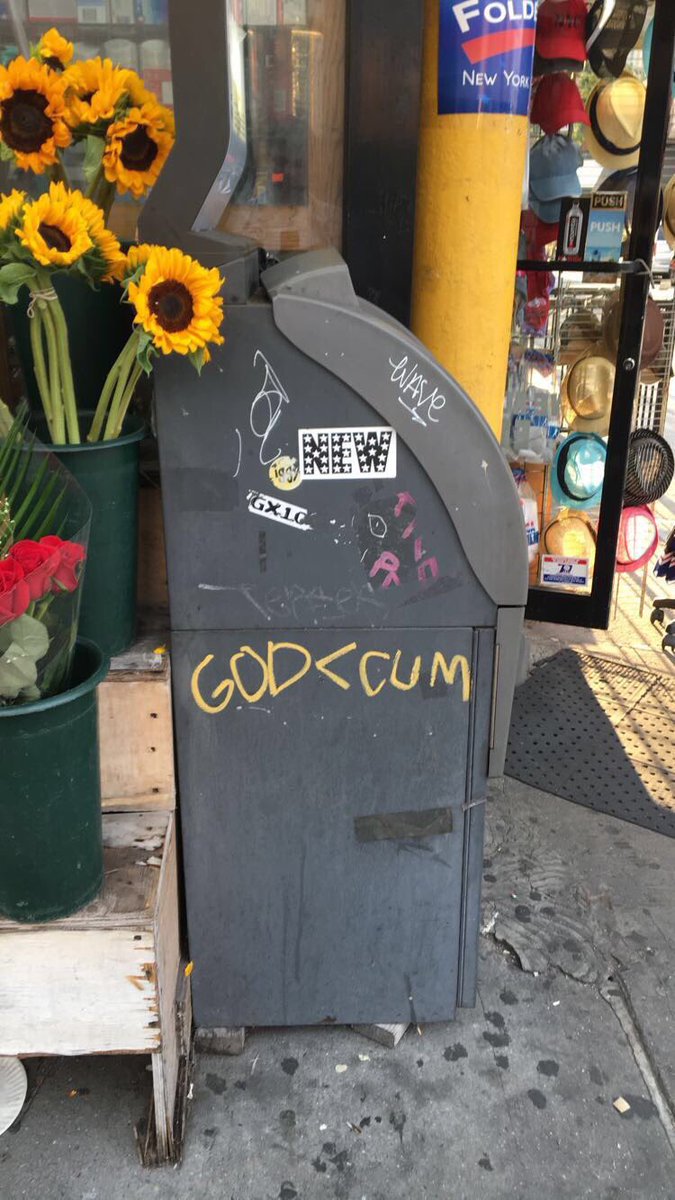 FOLDE
NEW YORK
PUSH
PUSH
WAVE
NEW
iggy
GX1C
GOD<CUM